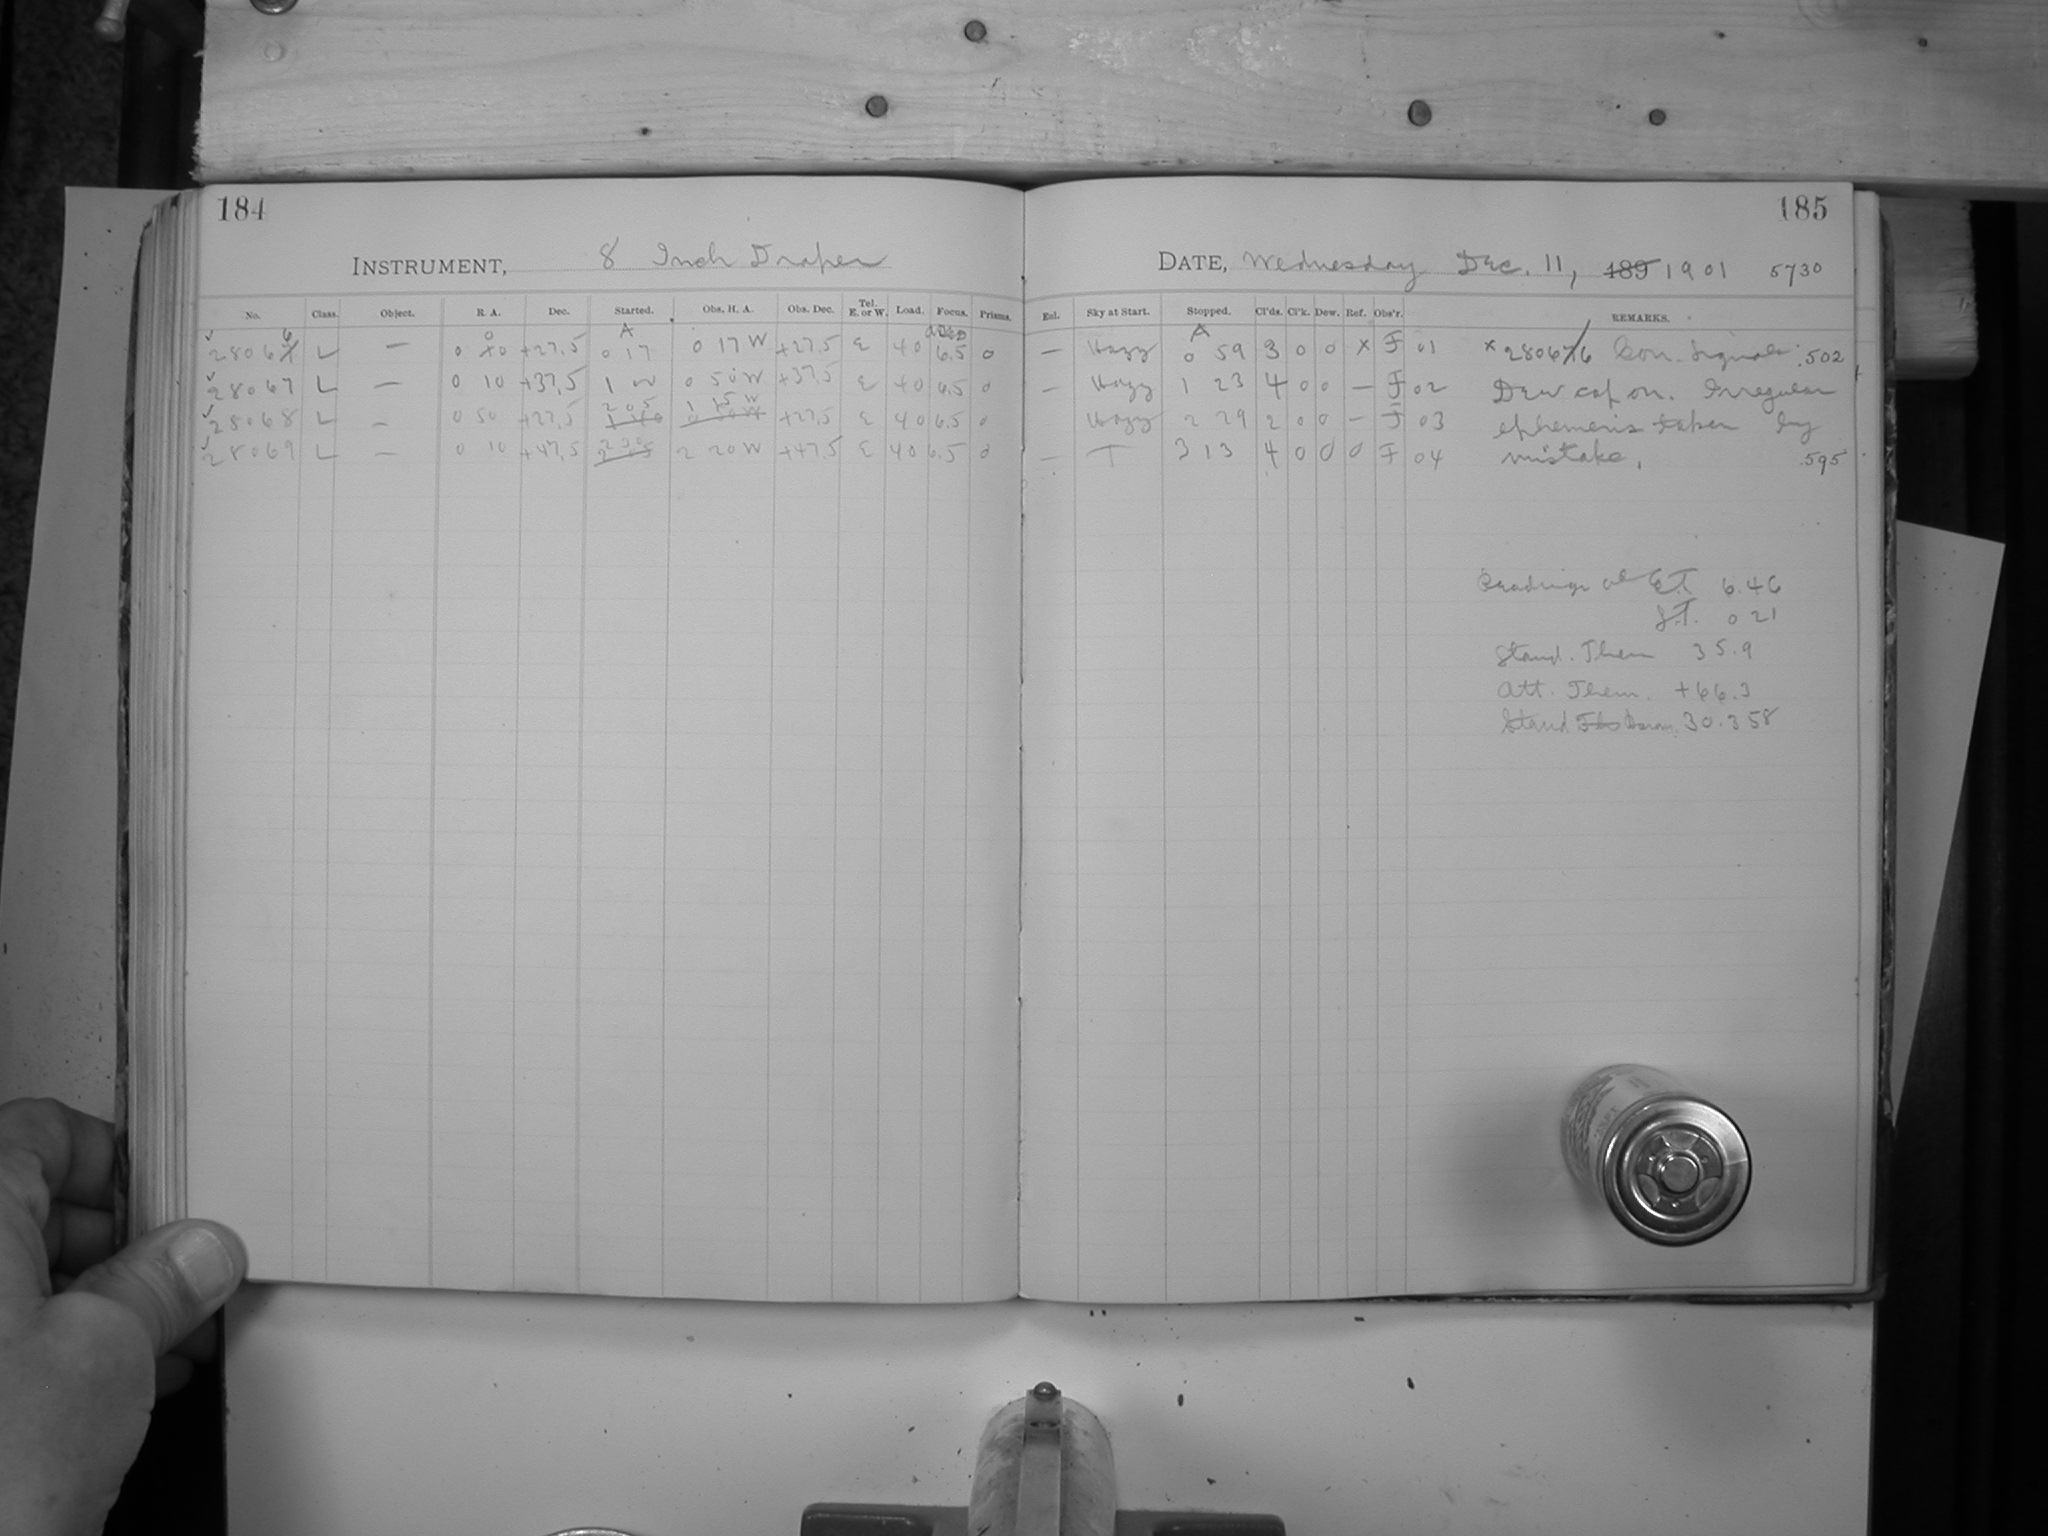 184
INSTRUMENT, 8 Inch Draper
No. Class. Object. R. A. Dec. Started. Obs. H. A. Obs. Dec. Tel. E. or W. Load. Focus. Prisms.
28066 L — 0 0 +27.5 A 0 17 0 17 W +27.5 E 40 6.5 0
28067 L — 0 10 +37.5 1 W 0 50 W +37.5 E 40 6.5 0
28068 L — 0 50 +27.5 2 05 1 15 W +27.5 E 40 6.5 0
28069 L — 0 10 +47.5 2 20 W +47.5 E 40 6.5 0
185
DATE, Wednesday Dec. 11, 189 1901 5730
Enl. Sky at Start. Stopped. Cl'ds. Cl'k. Dew. Ref. Obs'r. REMARKS.
— Hazy A 0 59 3 0 0 x F 01 x 28066 Con. Signals .502
— Hazy 1 23 4 0 0 — F 02 Dew cap on. Irregular
Hazy 2 29 2 0 0 — F 03 ephemeris taken by
— T 3 13 4 0 0 0 F 04 mistake. .595
Readings at E.T. 6.46
S.T. 0 21
Stand. Ther 35.9
Att. Ther. +66.3
Stand Barom. 30.358